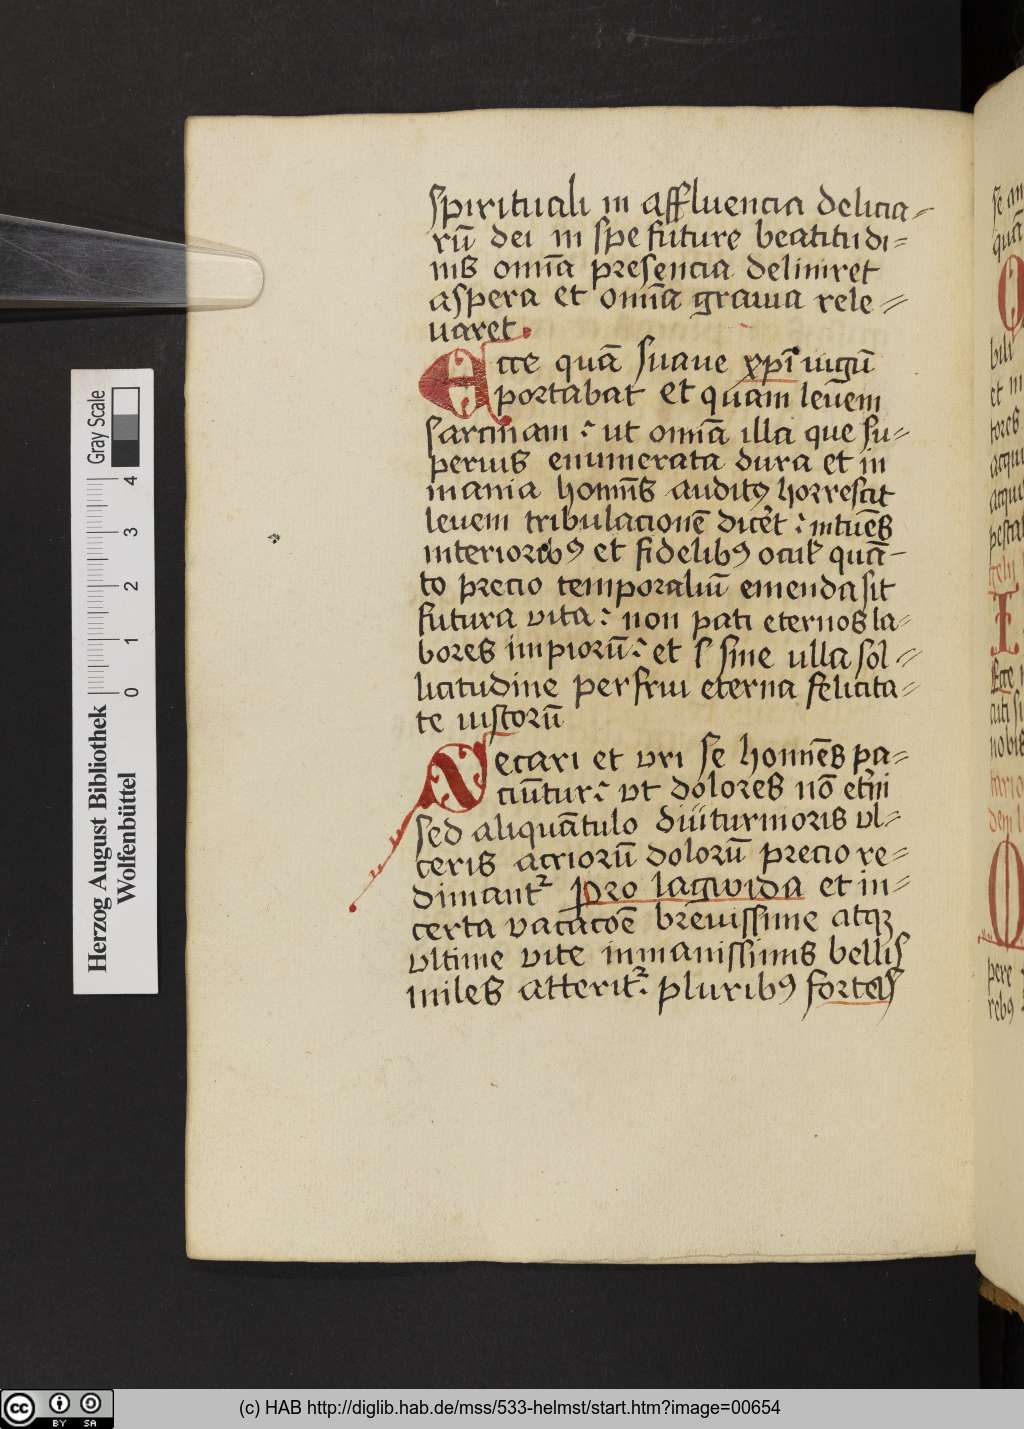 spirituali in affluencia delicia⸗
rū dei in spe future beatitudi⸗
nis om̄ia presencia deliniret
aspera et om̄ia grauia rele⸗
uaret.
Ecce quā suaue xp̄i iugū
portabat et quam leuem
sarcinam : ut om̄ia illa que su⸗
perius enumerata dura et in
mania homīs auditꝯ horrescit
leuem tribulacionē dicēt : intuēs
interioribꝯ et fidelibꝯ oculꝭ quā⸗
to precio temporaliū emenda sit
futura vita : non pati eternos la⸗
bores impiorū : et sꝫ sine ulla sol⸗
licitudine perfrui eterna felicita⸗
te iustorū
Secari et vri se homīes pa⸗
ciūtur : vt dolores nō et̄ni
sed aliquātulo diūturnioris vl⸗
ceris acriorū dolorū precio re⸗
dimant᷑ Pro lagwida et in⸗
certa vacacōe breuissime atqꝫ
vltime vite inmanissimis bellis
miles atterit᷑ : pluribꝯ fortes
Herzog August Bibliothek
Wolfenbüttel
Gray Scale
0 1 2 3 4
(c) HAB http://diglib.hab.de/mss/533-helmst/start.htm?image=00654
cc BY SA